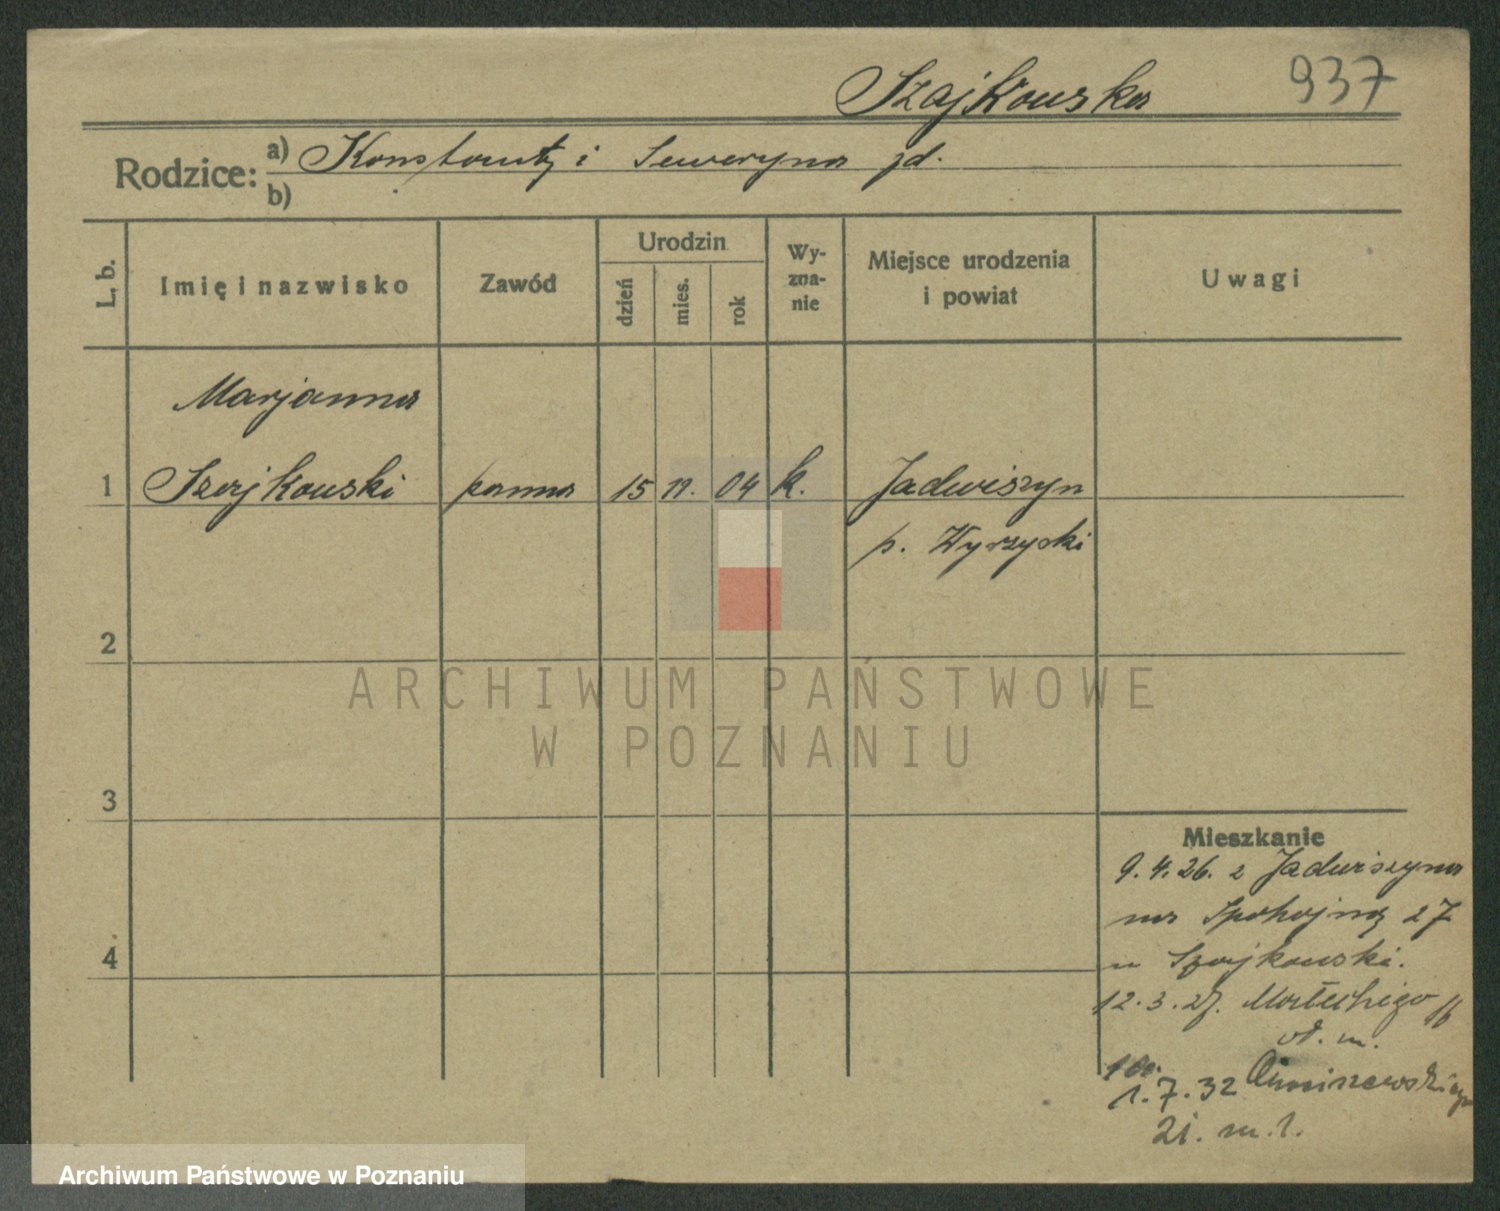 Szajkowska 937
Rodzice: a) Konstanty i Seweryna zd.
b)
L. b. Imię i nazwisko Zawód Urodzin dzień mies. rok Wyzna-nie Miejsce urodzenia i powiat Uwagi
Marjanna
1 Szajkowski panna 15 11. 04 k. Jadwiszyn
p. Wyrzyski
2
ARCHIWUM PAŃSTWOWE
W POZNANIU
3
Mieszkanie
9.4.26. z Jadwiszyna
na Spokojną 27
u Szajkowski.
4
12.3.27. Małeckiego
m.
1.7.32
21. m. 1.
Archiwum Państwowe w Poznaniu